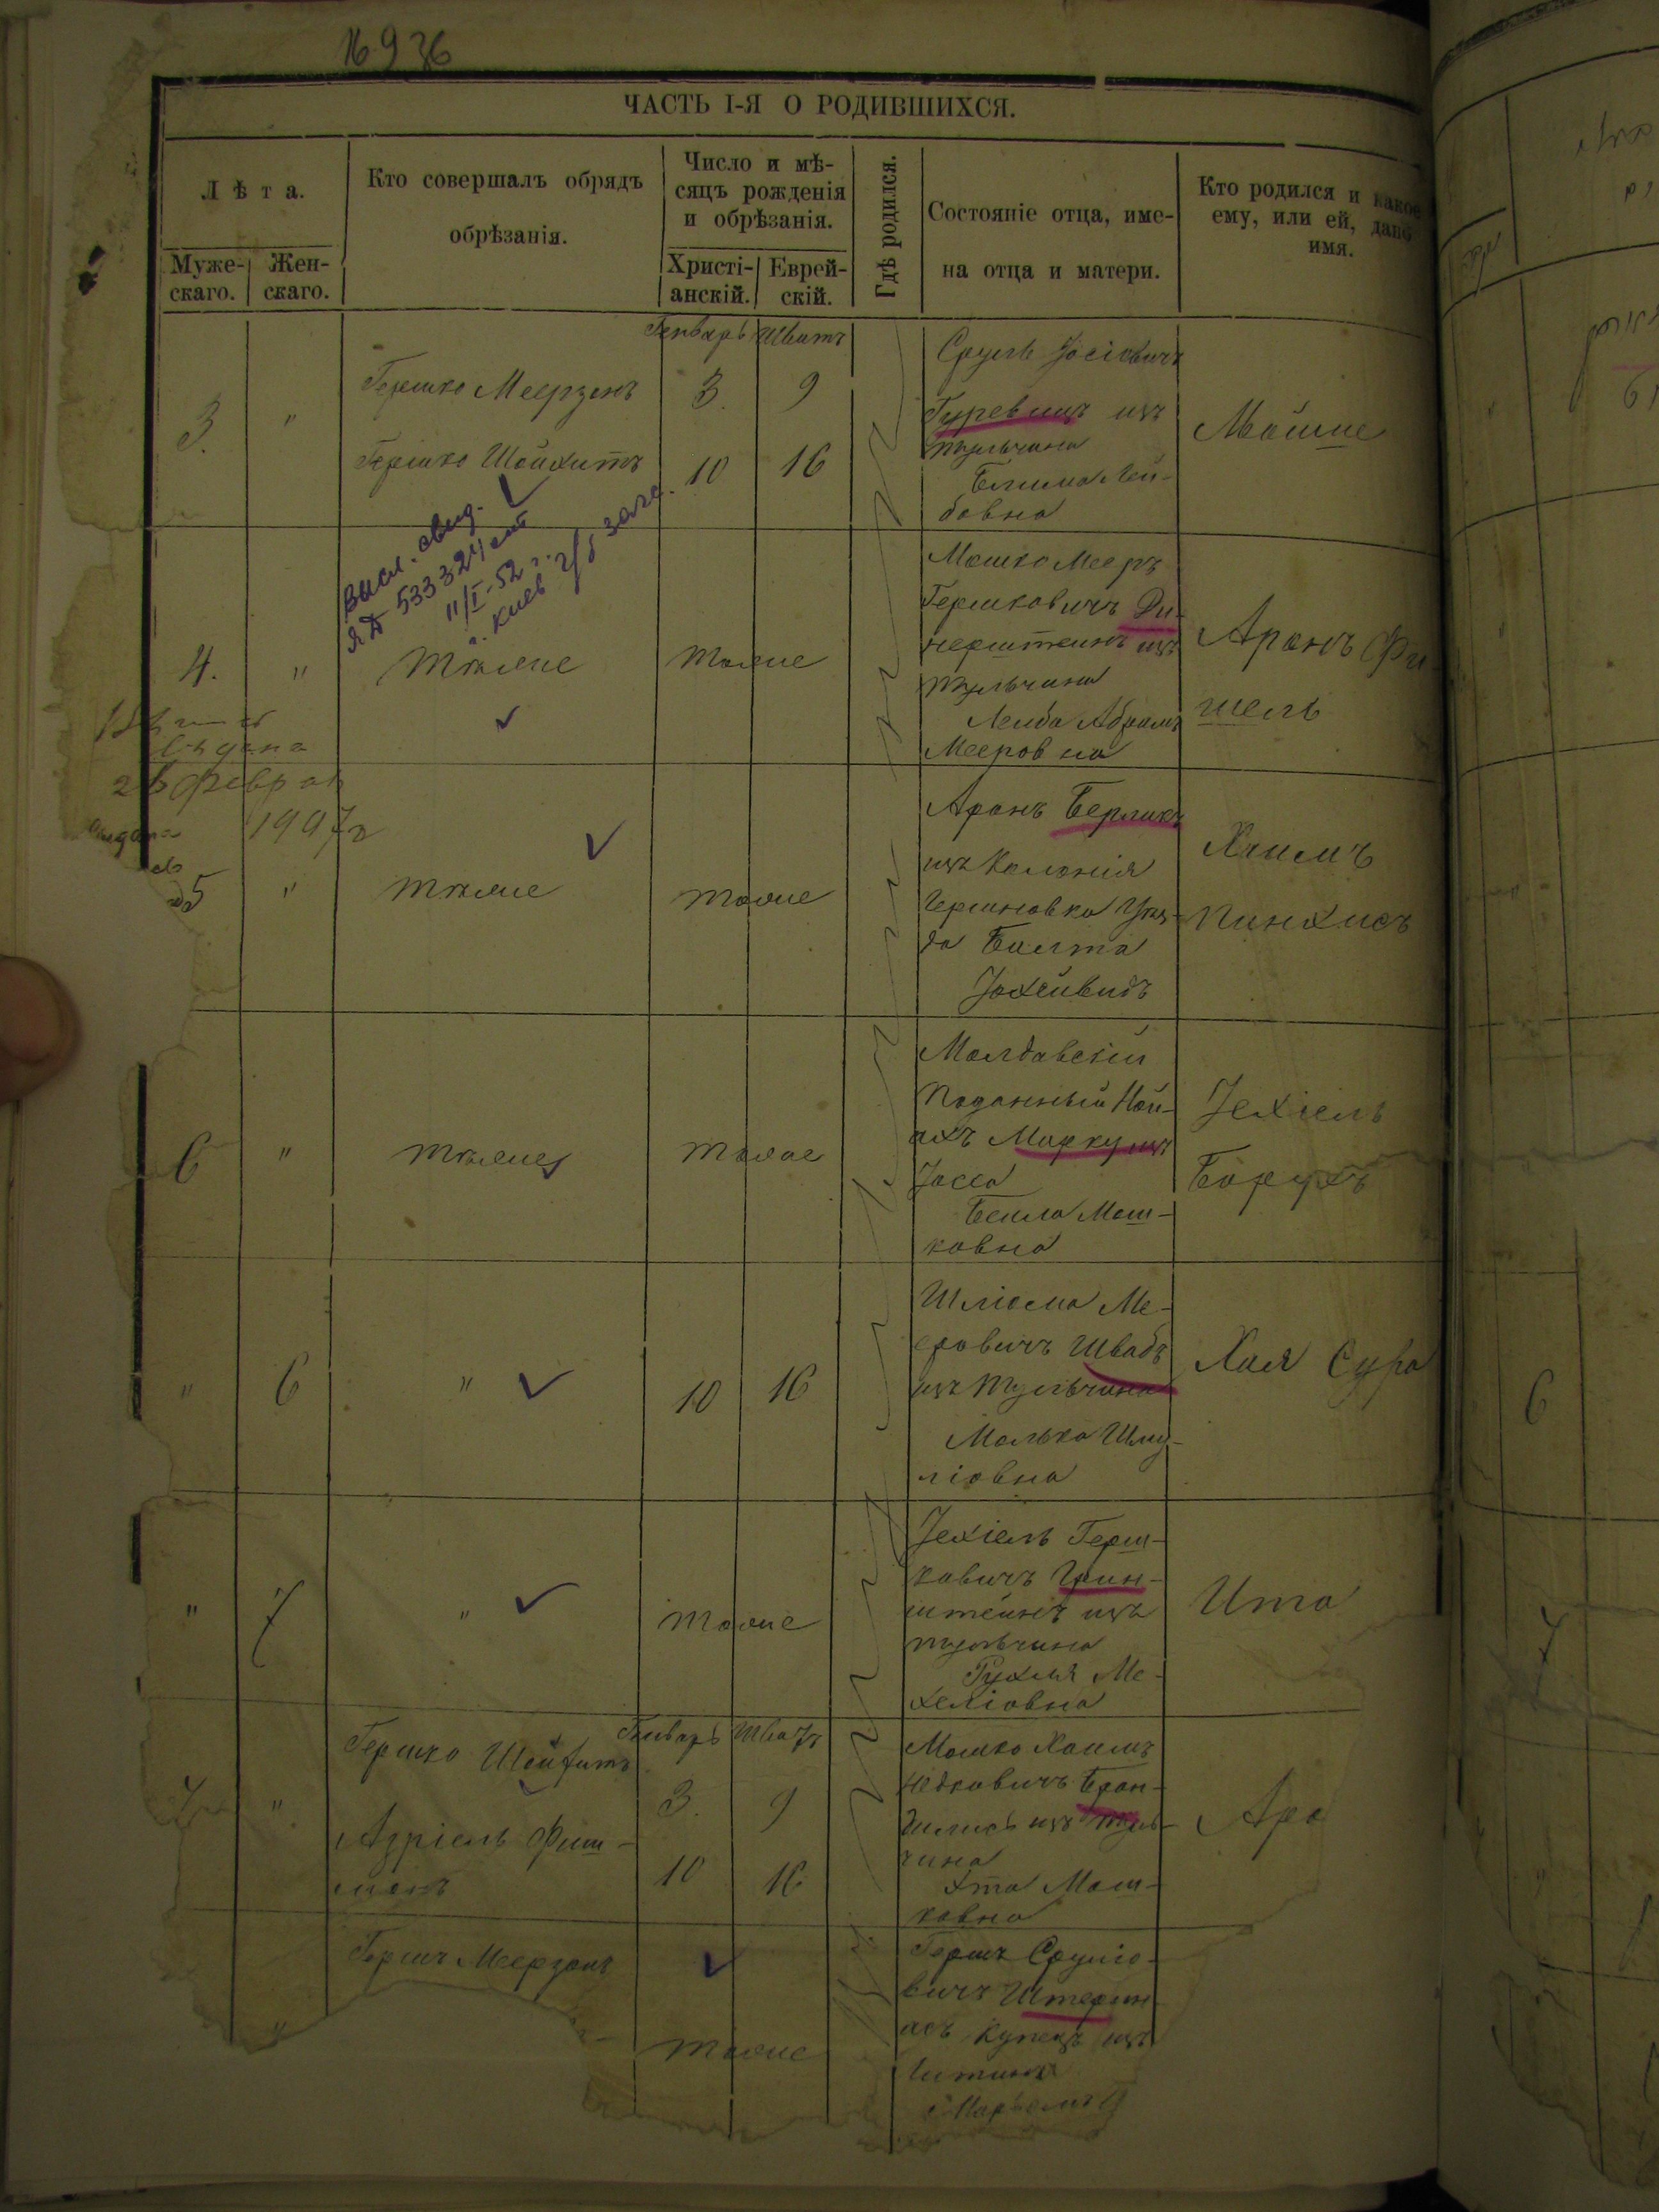 ЧАСТЬ I-Я О РОДИВШИХСЯ.
Лѣта.
Муже-
скаго.
Жен-
скаго.
Кто совершалъ обрядъ
обрѣзанія.
Число и мѣ-
сяцъ рожденія
и обрѣзанія.
Христі-
анскій.
Еврей-
скій.
Гдѣ родился.
Состояніе отца, име-
на отца и матери.
Кто родился и какое
ему, или ей, дано
имя.
3. "
Гершко Меерзонъ
Гершко Шойхитъ
Генварь Шватъ
3. 9
10 16
Сруль Іосіовичъ
Гуревицъ изъ
Тульчина
Блима Лей-
бовна
Мойше
4. "
высл. свид.
ЯД 533324
11/I-52 г.
г. Киев г/б загс.
Тѣмже
Тоже
Мошко Мееръ
Гершковичъ Ди-
нерштеинъ изъ
Тульчина
Абрамъ
Мееровна
Аронъ Фи-
шель
28 феврал
5 "
Тѣмже
Тоже
Аронъ Берликъ
изъ Колонія
да Балта
Іохейвидъ
Хаимъ
Пинхисъ
6 "
Тѣмже
Тоже
Молдавскій
Поданный Ной-
ахъ Марку изъ
Јасса
Бейла Мош-
ковна
Іехіель
Борухъ
" 6 "
10 16
Шліома Ме-
еровичъ Швабъ
изъ Тульчина
Малька Шму-
ліовна
Хая Сура
" 7 "
Тоже
Іехіель Герш-
ковичъ Грин-
штейнъ изъ
Тульчина
Рухля Ме-
хеліовна
Ита
7 "
Гершко Шойхитъ
Азріель Фиш-
манъ
Генварь Шватъ
3. 9
10 16
Мошко Хаимъ
изъ Туль-
чина
Мош-
ковна
Аро
Гершъ Меерзонъ
Тоже
Гершъ Сруліо-
вичъ
купецъ изъ